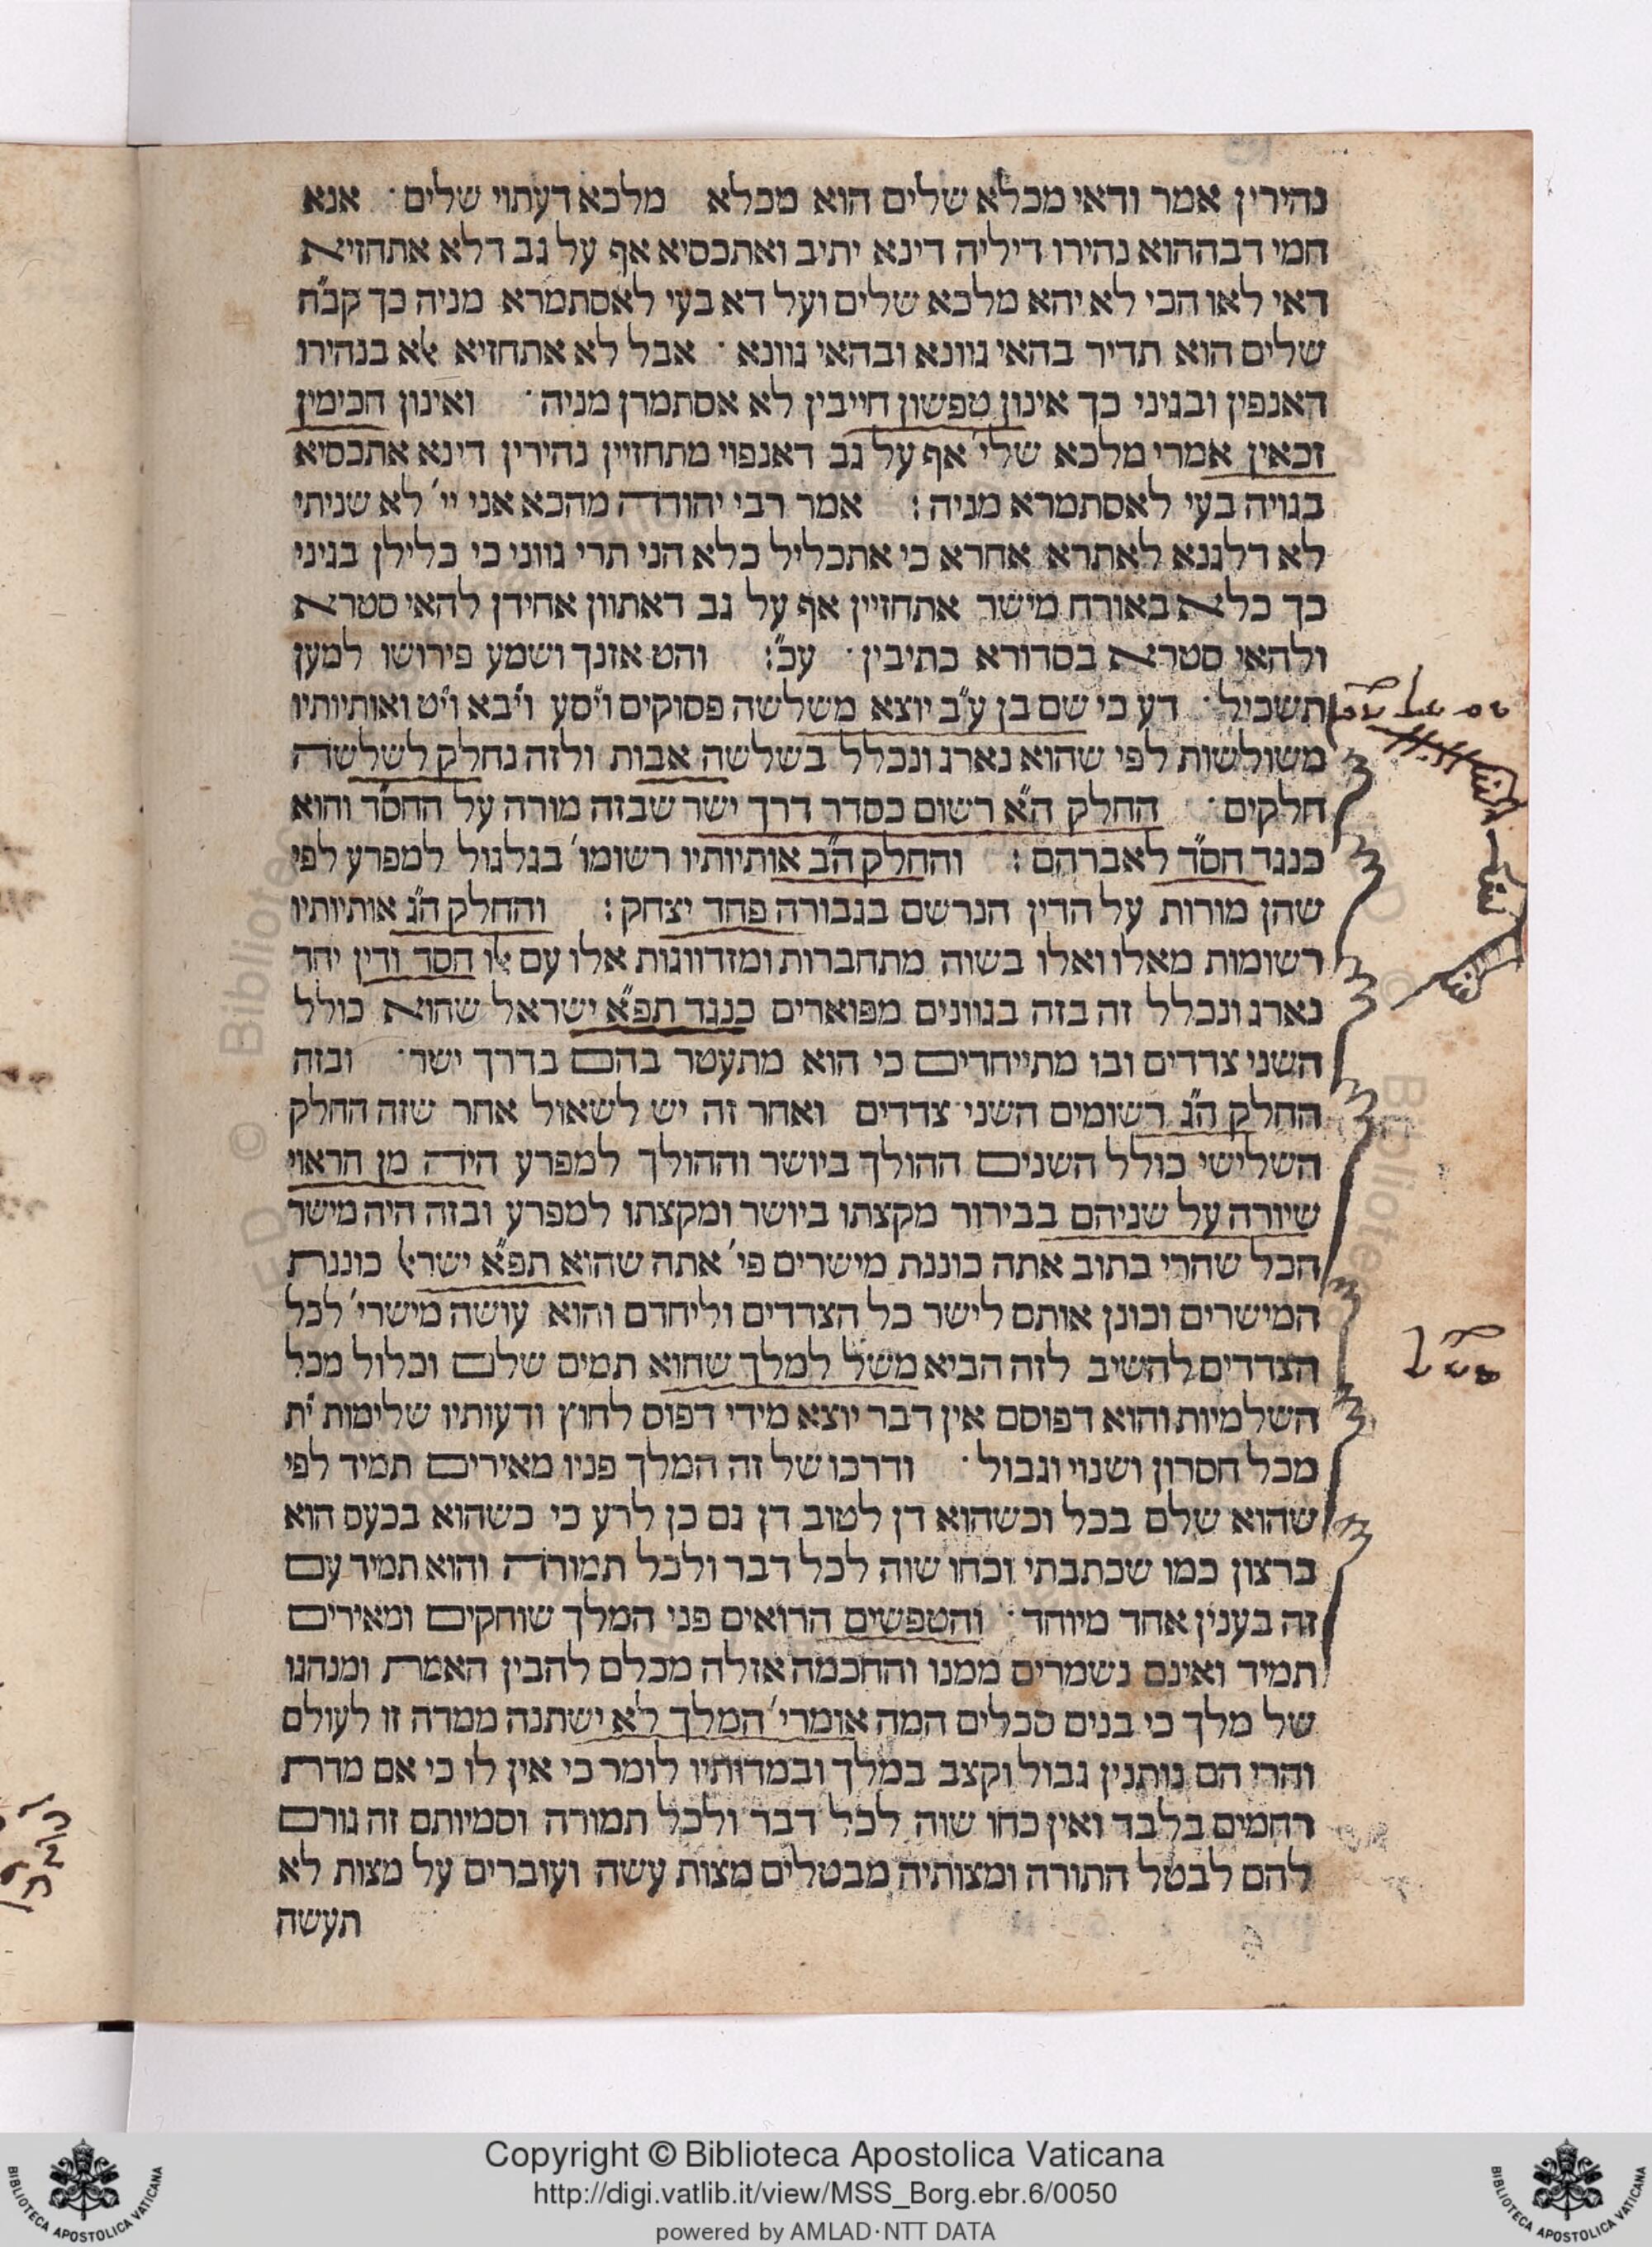 נהירין אמר ודאי מכלא שלים הוא מכלא מלכא דעתוי שלים· אנא
חמי דבההוא נהירו דיליה דינא יתיב ואתכסיא אף על גב דלא אתחזיא
דאי לאו הכי לא יהא מלכא שלים ועל דא בעי לאסתמרא מניה כך קב״ה
שלים הוא תדיר בהאי גוונא ובהאי גוונא· אבל לא אתחזיא אלא בנהירו
דאנפין ובגיני כך אינון טפשון חייבין לא אסתמרן מניה· ואינון חכימין
זכאין אמרי מלכא שלי׳ אף על גב דאנפוי מתחזיין נהירין דינא אתכסיא
בגויה בעי לאסתמרא מניה: אמר רבי יהודה מהכא אני יי׳ לא שניתי
לא דלגנא לאתרא אחרא כי אתכליל כלא הני תרי גווני כי כלילן בגיני
כך כלא באורח מישר אתחזיין אף על גב דאתוון אחידן להאי סטרא
ולהאי סטרא בסדורא כתיבין· עכ״: והט אזנך ושמע פירושו למען
תשכיל· דע כי שם בן ע״ב יוצא משלשה פסוקים ויסע ויבא ויט ואותיותיו
משולשות לפי שהוא נארג ונכלל בשלשה אבות ולזה נחלק לשלשה
חלקים· החלק הא׳ רשום כסדר דרך ישר שבזה מורה על החסד והוא
כנגד חס״ד לאברהם: והחלק הב׳ אותיותיו רשומו׳ בגלגול למפרע לפי
שהן מורות על הדין הנרשם בגבורה פחד יצחק: והחלק הג׳ אותיותיו
רשומות מאלו ואלו בשוה מתחברות ומזדווגות אלו עם אלו חסד ודין יחד
נארג ונכלל זה בזה בגוונים מפוארים כנגד תפ״א ישראל שהוא כולל
השני צדדים ובו מתייחדים כי הוא מתעטר בהם בדרך ישר· ובזה
החלק הג׳ רשומים השני צדדים ואחר זה יש לשאול אחר שזה החלק
השלישי כולל השנים ההולך ביושר וההולך למפרע היה מן הראוי
שיורה על שניהם בבירור מקצתו ביושר ומקצתו למפרע ובזה היה מישר
הכל שהרי כתוב אתה כוננת מישרים פי׳ אתה שהוא תפ״א ישראל כוננת
המישרים וכונן אותם לישר כל הצדדים וליחדם והוא עושה מישרי׳ לכל
הצדדים להשיב לזה הביא משל למלך שהוא תמים שלם וכלול מכל
השלמיות והוא דפוסם אין דבר יוצא מידי דפוס לחוץ ודעותיו שלימות
מכל חסרון ושנוי וגבול· ודרכו של זה המלך פניו מאירים תמיד לפי
שהוא שלם בכל וכשהוא דן לטוב דן גם כן לרע כי כשהוא בכעס הוא
ברצון כמו שכתבתי וכחו שוה לכל דבר ולכל תמורה והוא תמיד עם
זה בענין אחד מיוחד· והטפשים הרואים פני המלך שוחקים ומאירים
תמיד ואינם נשמרים ממנו והחכמה אזלה מכלם להבין האמת ומנהגו
של מלך כי בנים סכלים המה אומרי׳ המלך לא ישתנה ממדה זו לעולם
והרי הם נותנין גבול וקצב במלך ובמדותיו לומר כי אין לו כי אם מדת
רחמים בלבד ואין כחו שוה לכל דבר ולכל תמורה וסמיותם זה גורם
להם לבטל התורה ומצותיה מבטלים מצות עשה ועוברים על מצות לא
תעשה
Copyright © Biblioteca Apostolica Vaticana
http://digi.vatlib.it/view/MSS_Borg.ebr.6/0050
powered by AMLAD·NTT DATA
BIBLIOTECA APOSTOLICA VATICANA
BIBLIOTECA APOSTOLICA VATICANA